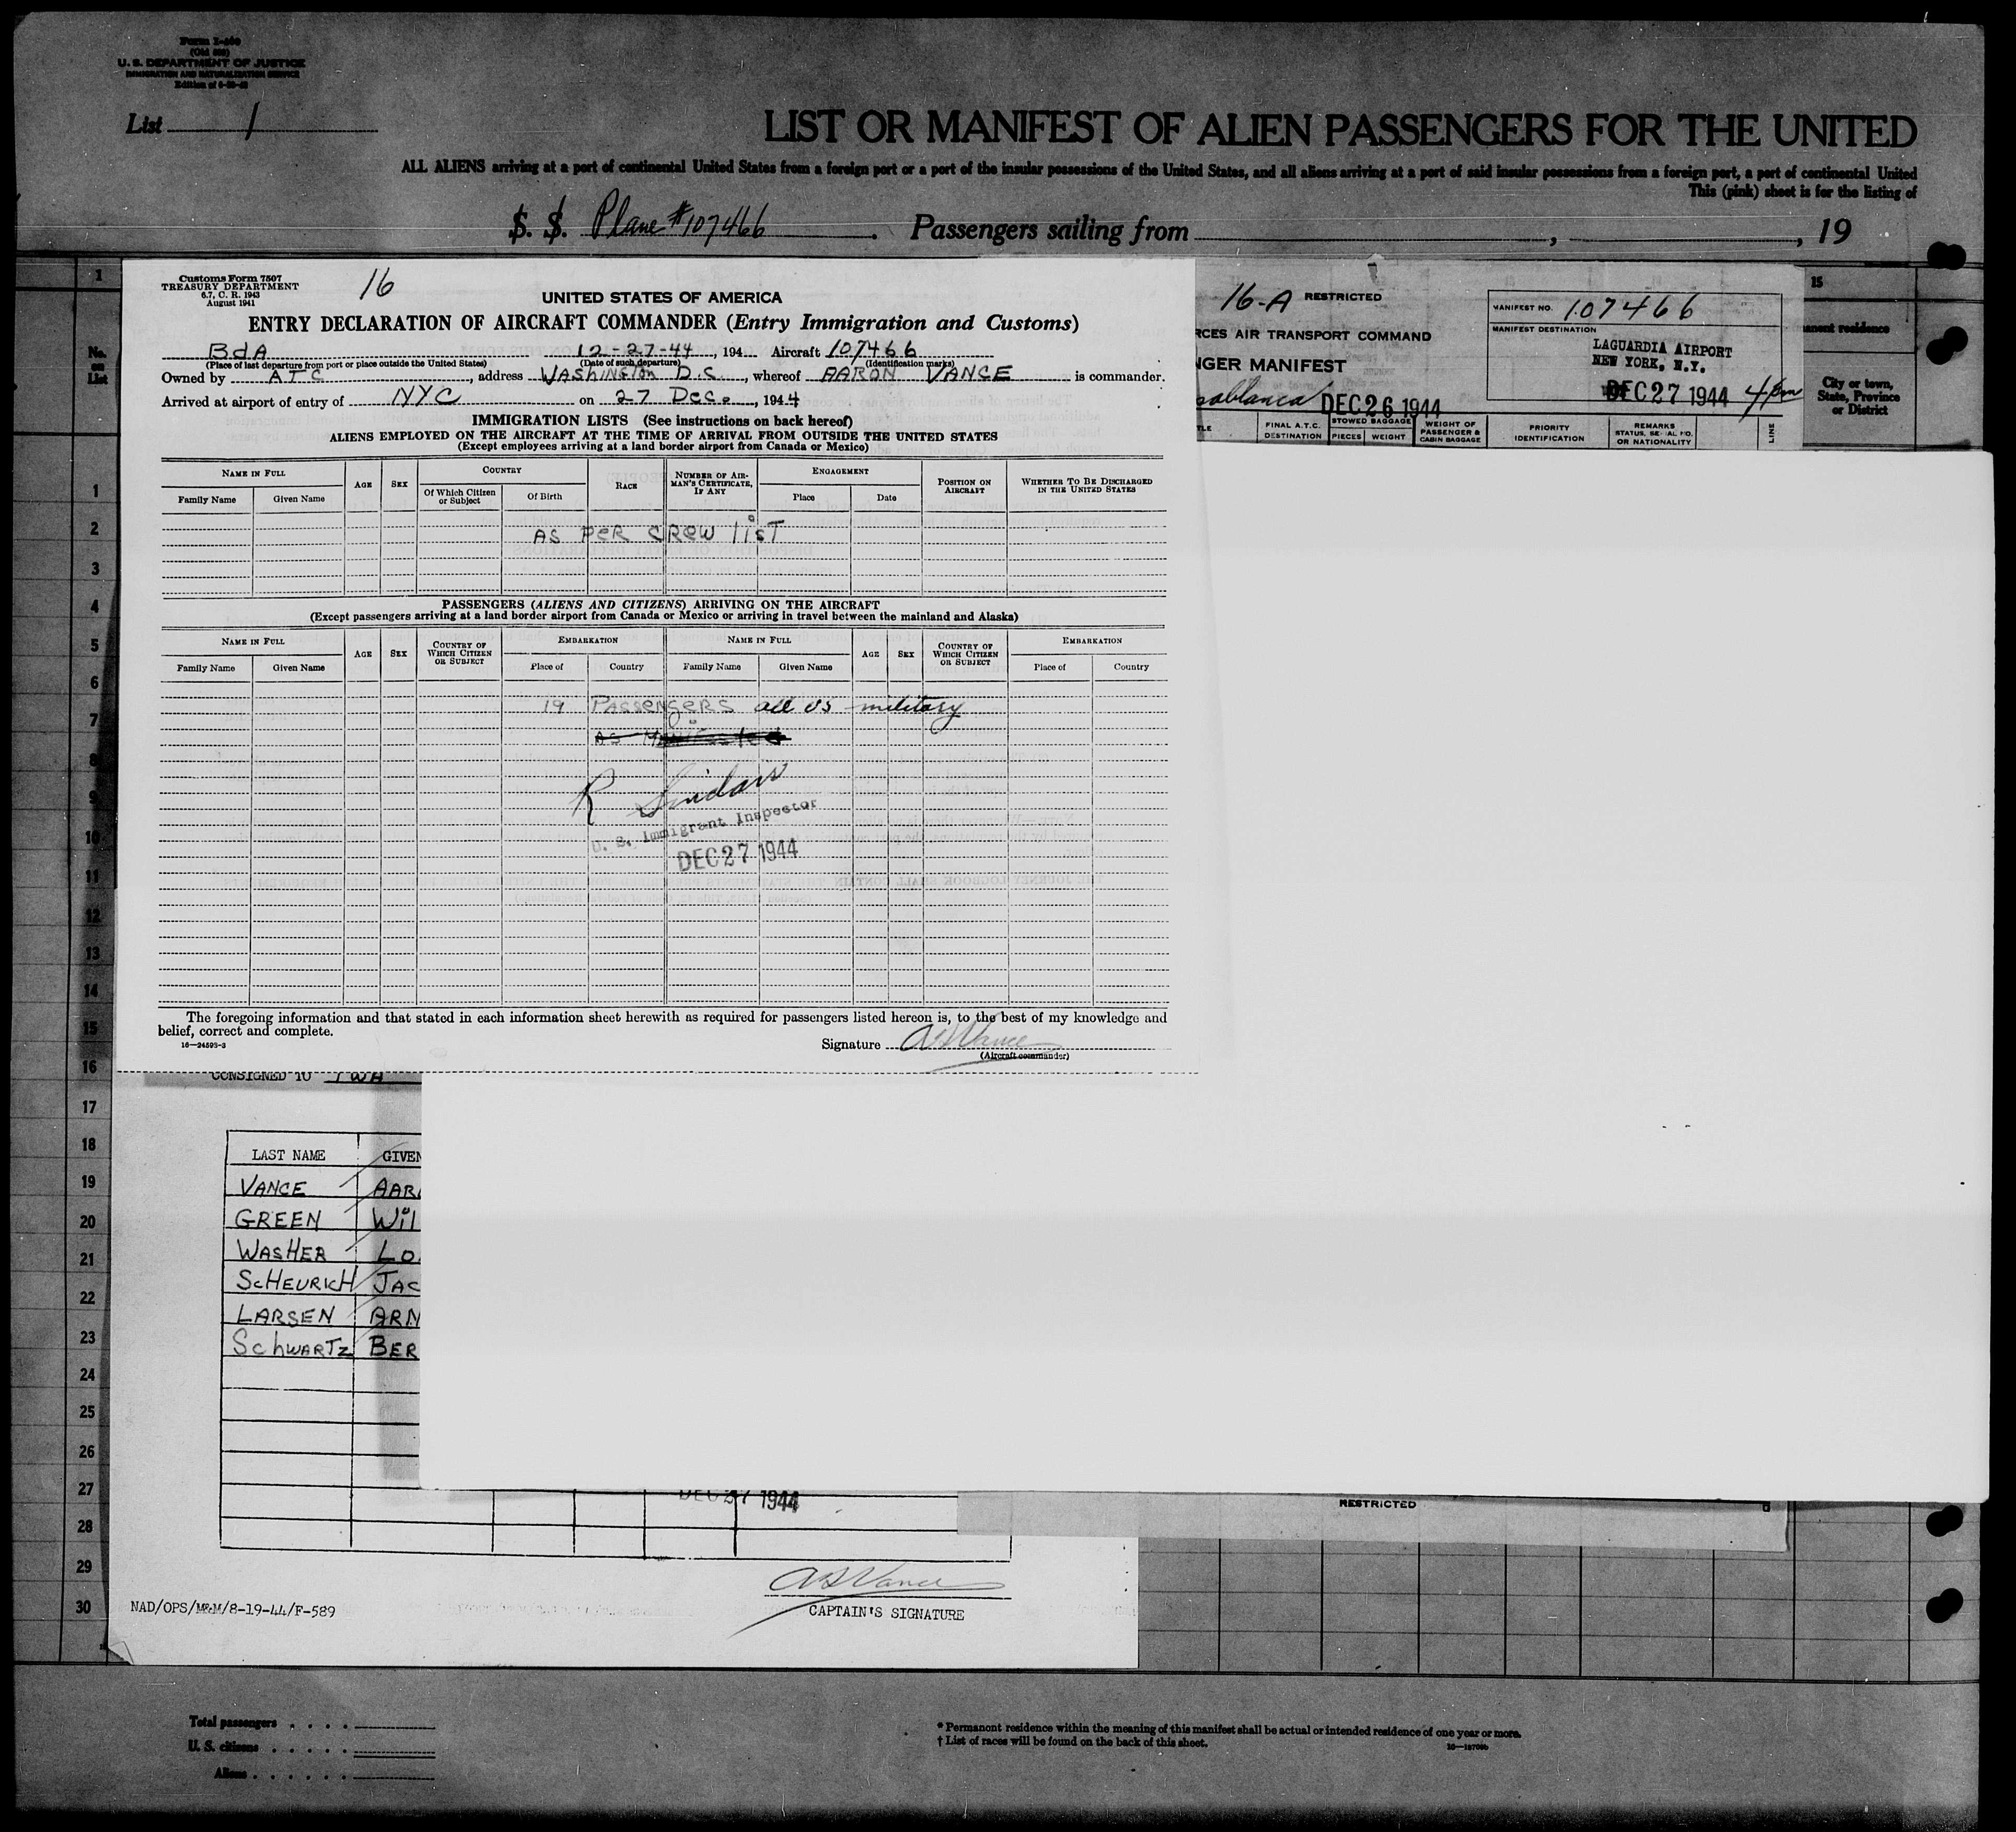 U. S. DEPARTMENT OF JUSTICE
IMMIGRATION AND NATURALIZATION SERVICE
List 1
LIST OR MANIFEST OF ALIEN PASSENGERS FOR THE UNITED
ALL ALIENS arriving at a port of continental United States from a foreign port or a port of the insular possessions of the United States, and all aliens arriving at a port of said insular possessions from a foreign port, a port of continental United
This (pink) sheet is for the listing of
S. S. Plane #107466. Passengers sailing from , , 19
1
No. on List
15
manent residence
City or town, State, Province or District
Customs Form 7507
TREASURY DEPARTMENT
6.7, C. R. 1943
August 1941
16
UNITED STATES OF AMERICA
ENTRY DECLARATION OF AIRCRAFT COMMANDER (Entry Immigration and Customs)
BdA 12-27-44, 194 Aircraft 107466
(Place of last departure from port or place outside the United States) (Date of such departure) (Identification marks)
Owned by ATC, address WAShINGTon D.C., whereof AARON VANCE is commander.
Arrived at airport of entry of NYC on 27 Dec., 1944
IMMIGRATION LISTS (See instructions on back hereof)
ALIENS EMPLOYED ON THE AIRCRAFT AT THE TIME OF ARRIVAL FROM OUTSIDE THE UNITED STATES
(Except employees arriving at a land border airport from Canada or Mexico)
NAME IN FULL AGE SEX COUNTRY RACE NUMBER OF AIRMAN'S CERTIFICATE, IF ANY ENGAGEMENT POSITION ON AIRCRAFT WHETHER TO BE DISCHARGED IN THE UNITED STATES
Family Name Given Name Of Which Citizen or Subject Of Birth Place Date
AS PER CREW liST
PASSENGERS (ALIENS AND CITIZENS) ARRIVING ON THE AIRCRAFT
(Except passengers arriving at a land border airport from Canada or Mexico or arriving in travel between the mainland and Alaska)
NAME IN FULL AGE SEX COUNTRY OF WHICH CITIZEN OR SUBJECT EMBARKATION NAME IN FULL AGE SEX COUNTRY OF WHICH CITIZEN OR SUBJECT EMBARKATION
Family Name Given Name Place of Country Family Name Given Name Place of Country
19 PASSENGERS all US military
AS Manifested
R
U. S. Immigrant Inspector
DEC 27 1944
The foregoing information and that stated in each information sheet herewith as required for passengers listed hereon is, to the best of my knowledge and
belief, correct and complete.
16—24593-3
Signature A S Vance
(Aircraft commander)
16-A RESTRICTED
RCES AIR TRANSPORT COMMAND
NGER MANIFEST
sablanca DEC 26 1944
MANIFEST NO. 107466
MANIFEST DESTINATION
LAGUARDIA AIRPORT
NEW YORK, N.Y.
DEC 27 1944 4 pm
TLE FINAL A.T.C. DESTINATION STOWED BAGGAGE PIECES WEIGHT WEIGHT OF PASSENGER & CABIN BAGGAGE PRIORITY IDENTIFICATION REMARKS STATUS, SERIAL NO. OR NATIONALITY LINE
1
2
3
4
5
6
7
8
9
10
11
12
13
14
15
16
17
18
19
20
21
22
23
24
25
26
27
28
29
30
CONSIGNED TO TWA
LAST NAME GIVEN
VANCE AAR
GREEN Wil
WASHER Lo
ScHEURICH JAC
LARSEN ARN
SchwARTz BER
DEC 27 1944
RESTRICTED
A S Vance
NAD/OPS/M&M/8-19-44/F-589
CAPTAIN'S SIGNATURE
Total passengers
U. S. citizens
Aliens
* Permanent residence within the meaning of this manifest shall be actual or intended residence of one year or more.
† List of races will be found on the back of this sheet.